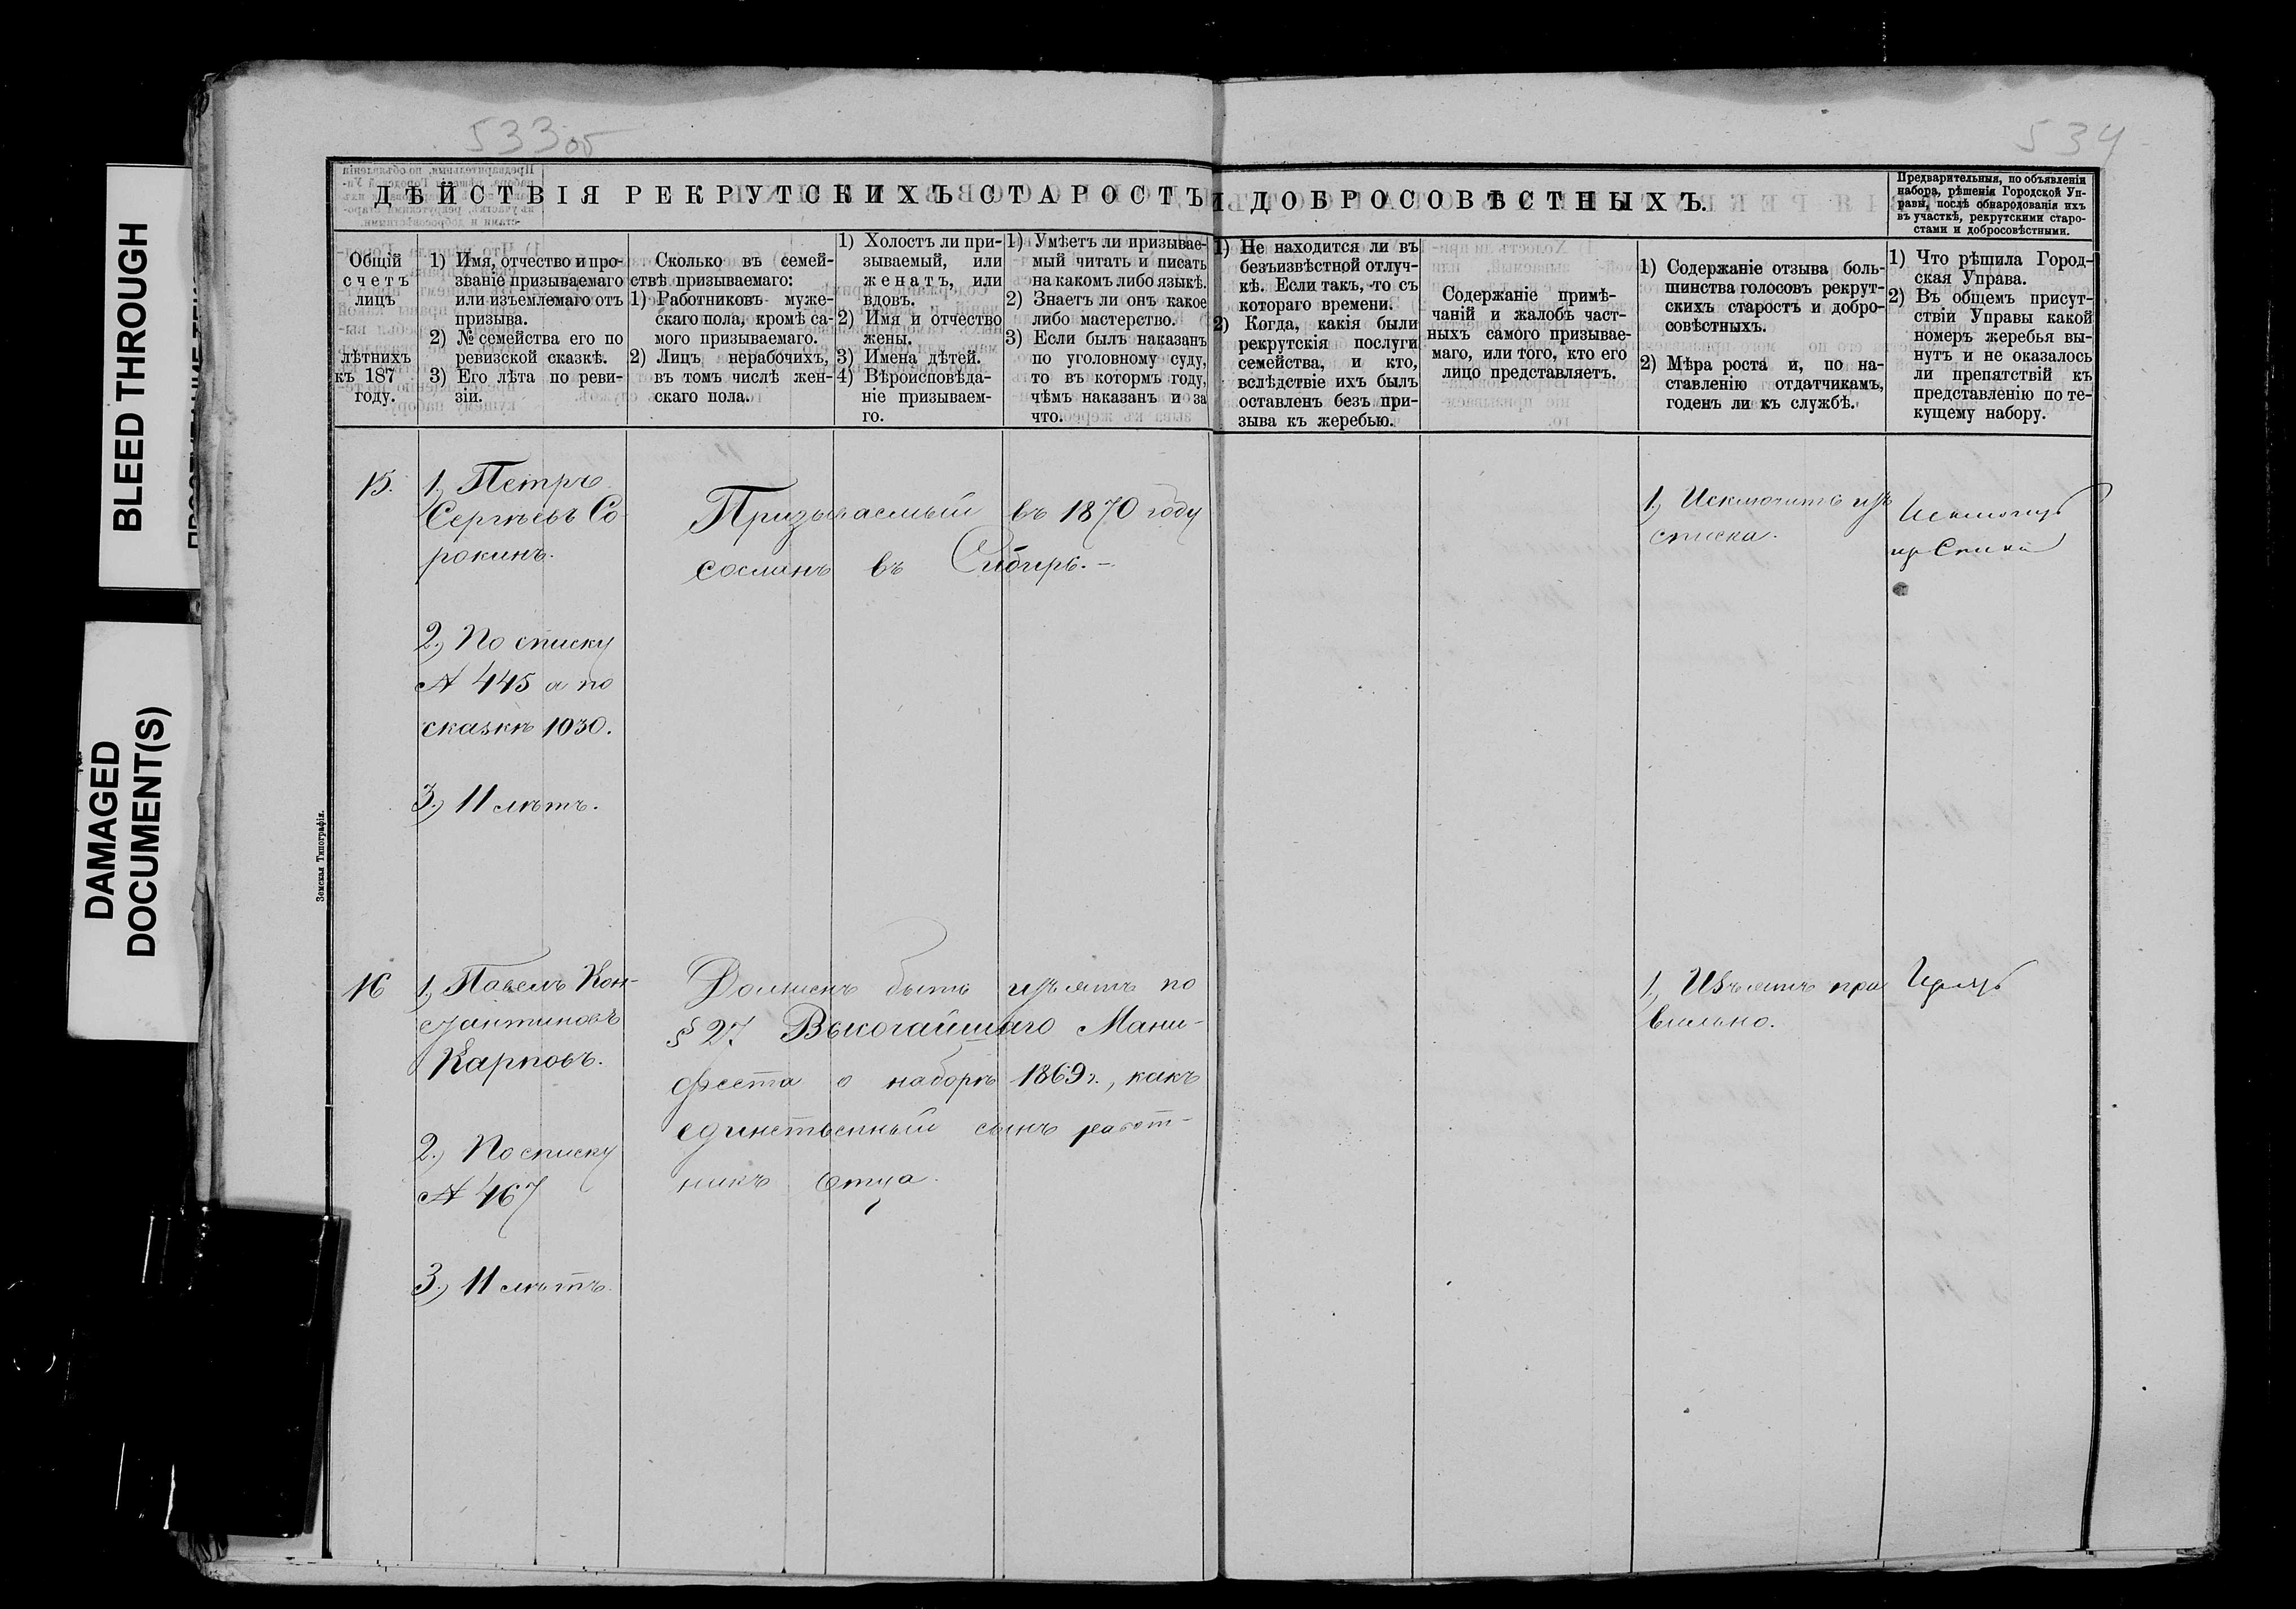 BLEED THROUGH
DAMAGED
DOCUMENT(S)
533 об
534
ДѢЙСТВІЯ РЕКРУТСКИХЪ СТАРОСТЪ И ДОБРОСОВѢСТНЫХЪ.
Предварительныя, по объявленіи
набора, рѣшенія Городской Уп-
равы, послѣ обнародованія ихъ
въ участкѣ, рекрутскими старо-
стами и добросовѣстными.
Общій
счетъ
лицъ
лѣтнихъ
къ 187
году.
1) Имя, отчество и про-
званіе призываемаго
или изъемлемаго отъ
призыва.
2) № семейства его по
ревизской сказкѣ.
3) Его лѣта по реви-
зіи.
Сколько въ семей-
ствѣ призываемаго:
1) Работниковъ муже-
скаго пола, кромѣ са-
мого призываемаго.
2) Лицъ нерабочихъ,
въ томъ числѣ жен-
скаго пола.
1) Холостъ ли при-
зываемый, или
женатъ, или
вдовъ.
2) Имя и отчество
жены.
3) Имена дѣтей.
4) Вѣроисповѣда-
ніе призываем-
го.
1) Умѣетъ ли призывае-
мый читать и писать
на какомъ либо языкѣ.
2) Знаетъ ли онъ какое
либо мастерство.
3) Если былъ наказанъ
по уголовному суду,
то въ котормъ году,
чѣмъ наказанъ и за
что.
1) Не находится ли въ
безъизвѣстной отлуч-
кѣ. Если такъ, то съ
котораго времени.
2) Когда, какія были
рекрутскія послуги
семейства, и кто,
вслѣдствіе ихъ былъ
оставленъ безъ при-
зыва къ жеребью.
Содержаніе примѣ-
чаній и жалобъ част-
ныхъ самого призывае-
маго, или того, кто его
лицо представляетъ.
1) Содержаніе отзыва боль-
шинства голосовъ рекрут-
скихъ старостъ и добро-
совѣстныхъ.
2) Мѣра роста и, по на-
ставленію отдатчикамъ,
годенъ ли къ службѣ.
1) Что рѣшила Город-
ская Управа.
2) Въ общемъ присут-
ствіи Управы какой
номеръ жеребья вы-
нутъ и не оказалось
ли препятствій къ
представленію по те-
кущему набору.
15.
1.) Петръ
Сергѣевъ Со-
рокинъ.
2.) По списку
№ 445 а по
сказкѣ 1030.
3.) 11 лѣтъ.
Призываемый въ 1870 году
сосланъ въ Сибирь. –
1.) Исключить изъ
списка.
16
1.) Павелъ Кон-
стантиновъ
Карповъ.
2.) По списку
№ 467
3.) 11 лѣтъ.
Долженъ быть изъятъ по
§ 27. Высочайшаго Мани-
феста о наборѣ 1869 г., какъ
единственный сынъ работ-
никъ отца.
1.) Изъятъ пра
вильно.
Земская Типографія.